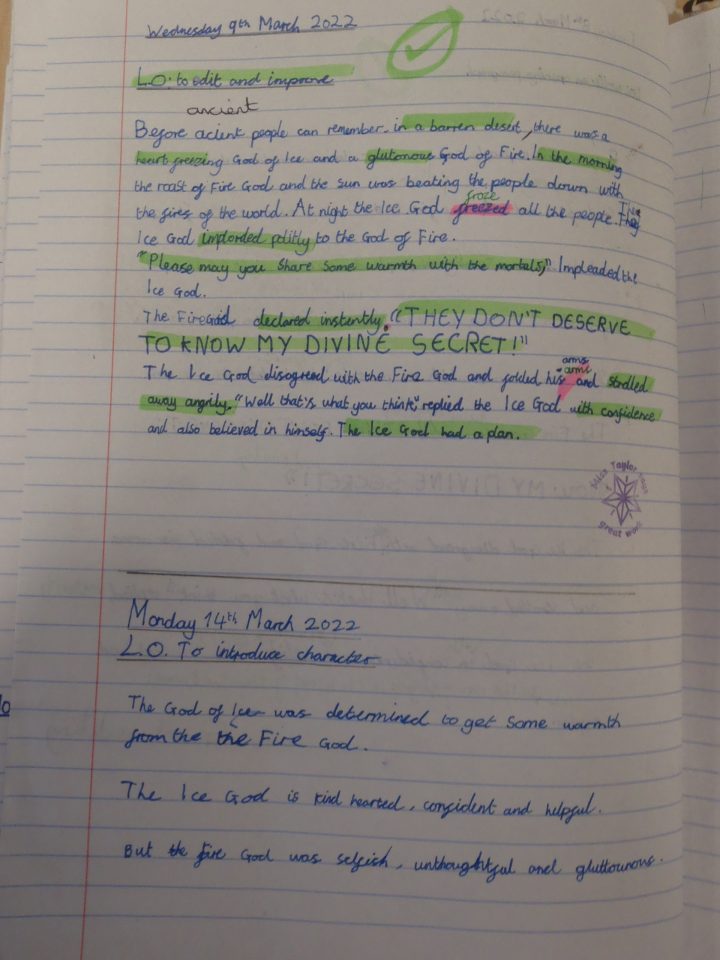 Wednesday 9th March 2022
L.O: to edit and improve
ancient
Before acient people can remember, in a barren desert, there was a
heart freezing God of Ice and a glutonous God of Fire. In the morning
the roast of Fire God and the sun was beating the people down with
froze
the fires of the world. At night the Ice God freezed all the people. The
Ice God implorded politly to the God of Fire.
"Please may you share some warmth with the mortals," Impleaded the
Ice God.
The Fire God declared instently. "THEY DON'T DESERVE
TO KNOW MY DIVINE SECRET!"
arms
The Ice God disogread with the Fire God and folded his and strolled
away angrily. "Well that's what you think" replied the Ice God with confidence
and also believed in himself. The Ice God had a plan.
Miss Taylor says
great work
Monday 14th March 2022
L.O. To introduce character
The God of Ice was determined to get some warmth
from the the Fire God.
The Ice God is kind hearted, confident and helpful.
But the fire God was selfish, unthoughtful and gluttounous.